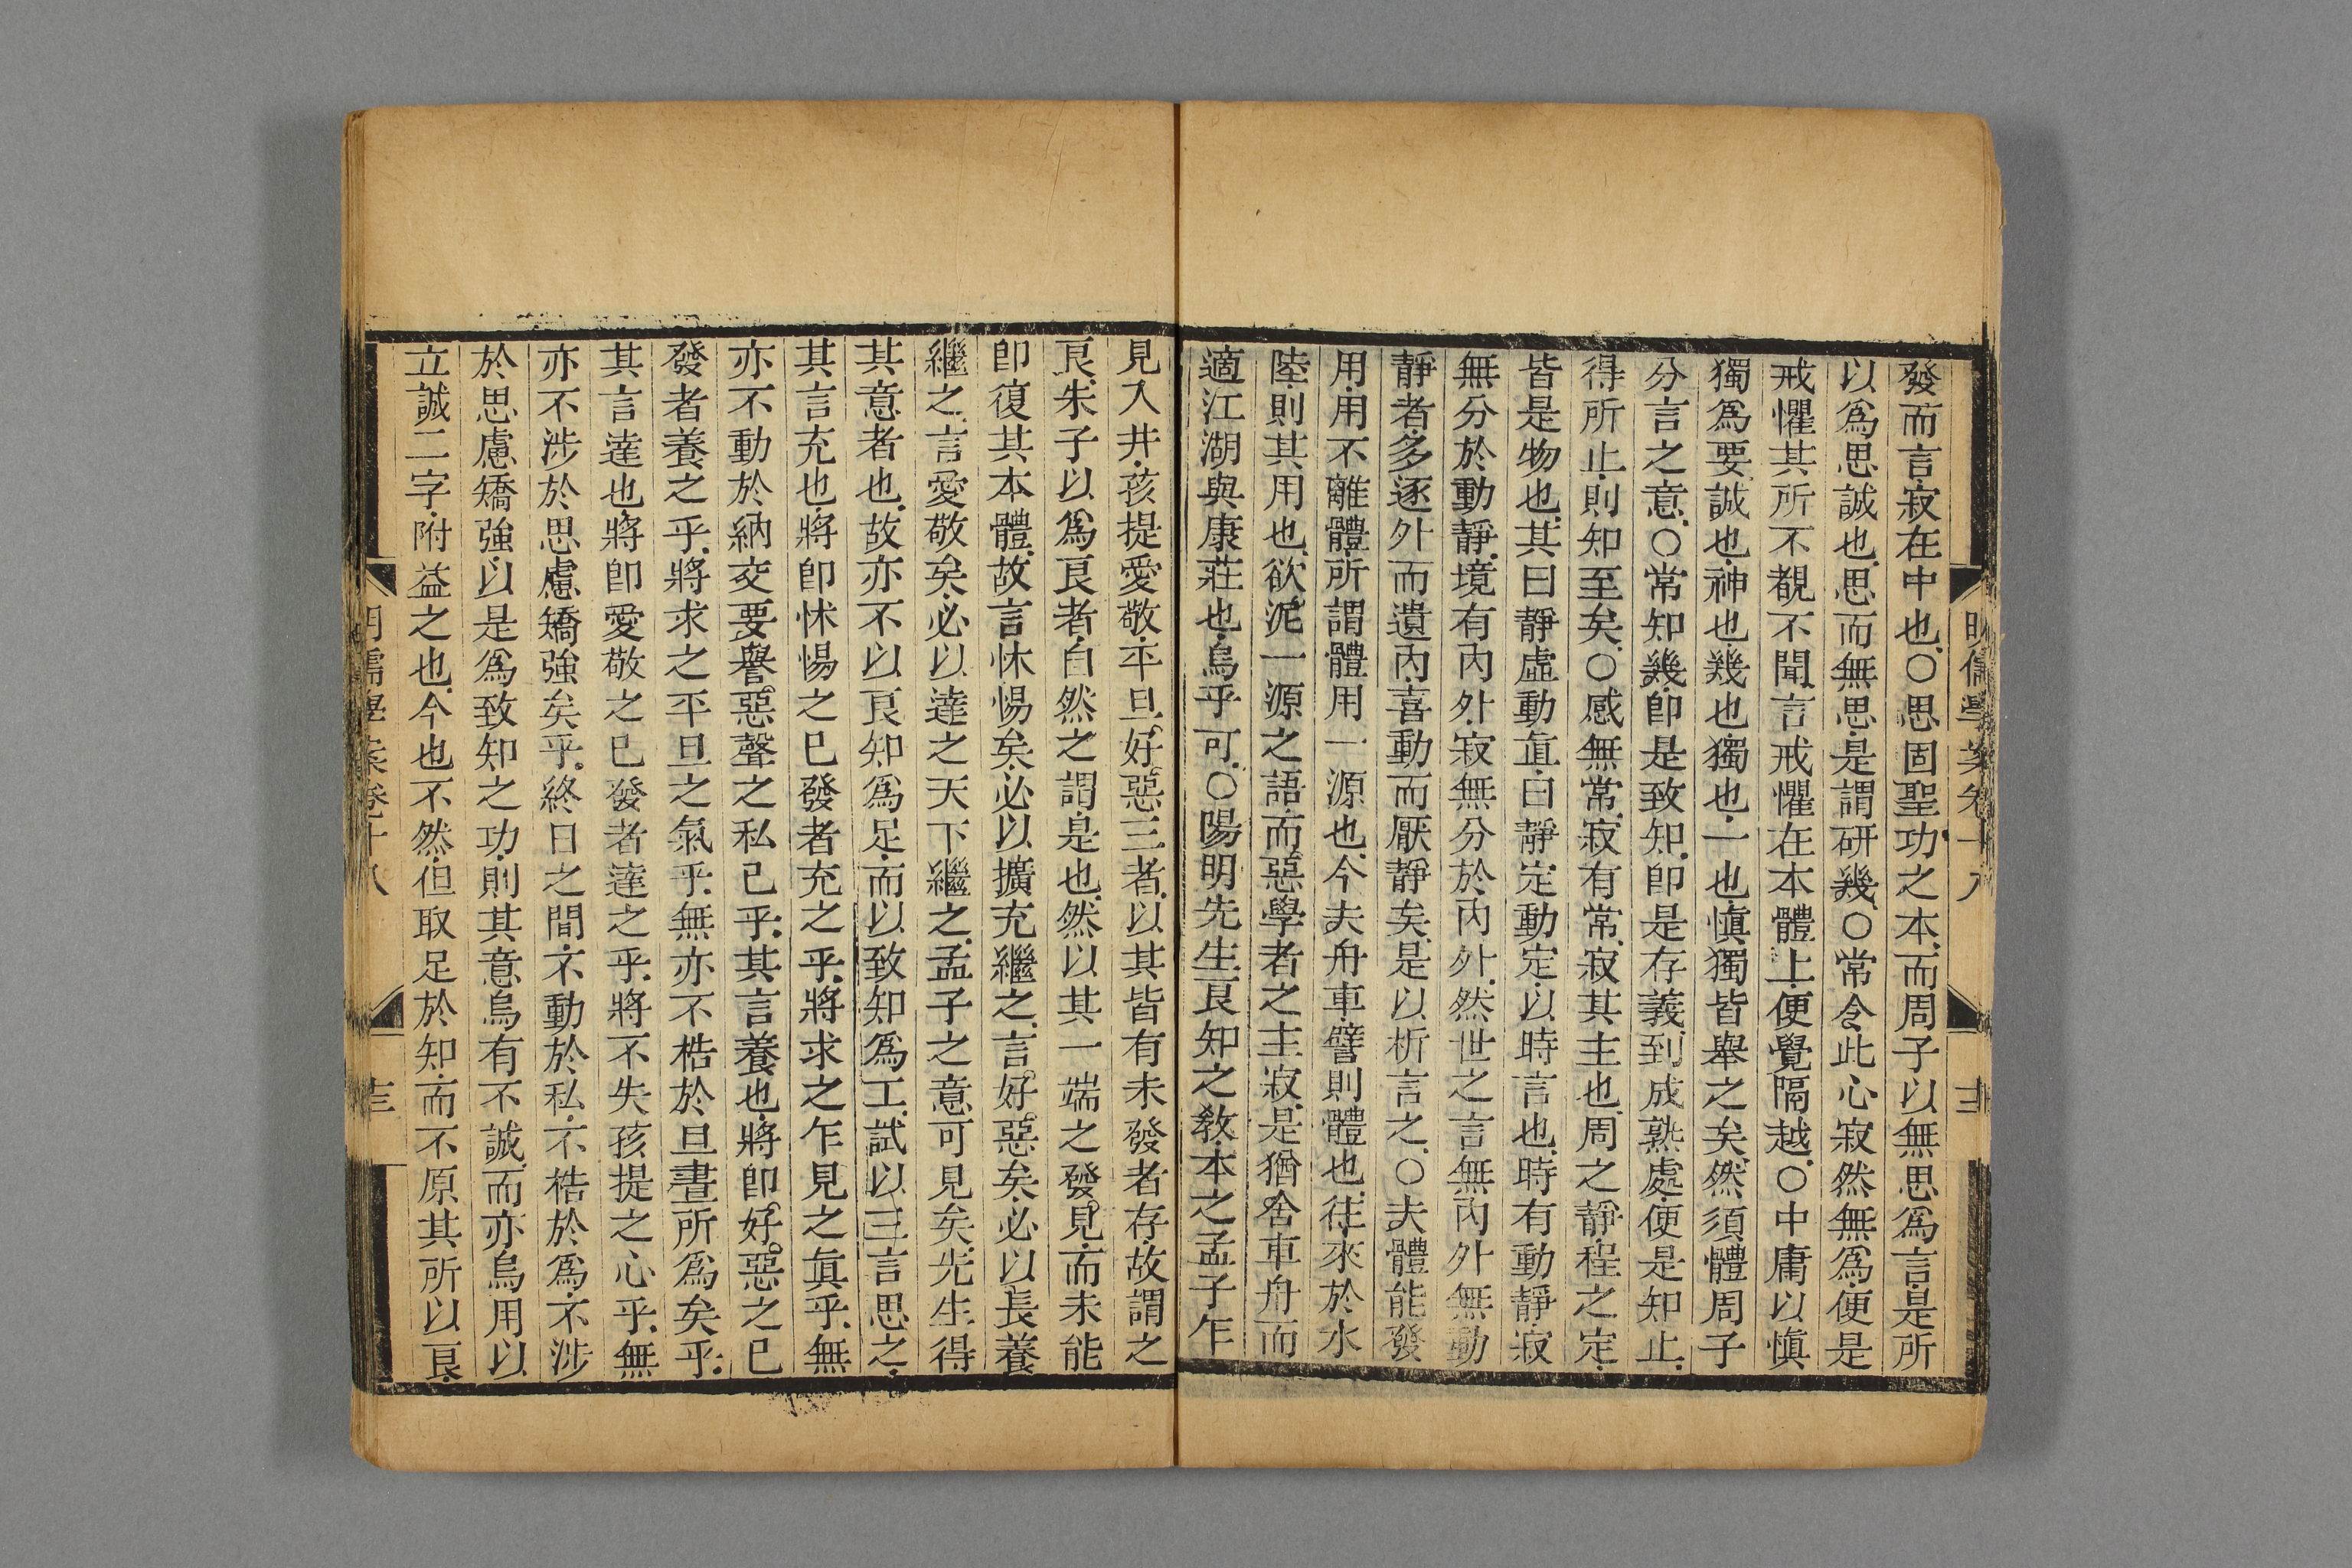 發而言寂在中也○思固聖功之本而周子以無思爲言是所
以爲思誠也思而無思是謂研幾○常令此心寂然無爲便是
戒懼其所不覩不聞言戒懼在本體上便覺隔越○中庸以慎
獨爲要誠也神也幾也獨也一也慎獨皆舉之矣然須體周子
分言之意○常知幾卽是致知卽是存義到成熟處便是知止
得所止則知至矣○感無常寂有常寂其主也周之靜程之定
皆是物也其曰靜虛動直曰靜定動定以時言也時有動靜寂
無分於動靜境有內外寂無分於內外然世之言無內外無動
靜者多逐外而遺內喜動而厭靜矣是以析言之○夫體能發
用用不離體所謂體用一源也今夫舟車譬則體也往來於水
陸則其用也欲泥一源之語而惡學者之主寂是猶舍車舟而
適江湖與康莊也烏乎可○陽明先生良知之教本之孟子乍
見入井孩提愛敬平旦好惡三者以其皆有未發者存故謂之
良朱子以爲良者自然之謂是也然以其一端之發見而未能
卽復其本體故言怵惕矣必以擴充繼之言好惡矣必以長養
繼之言愛敬矣必以達之天下繼之孟子之意可見矣先生得
其意者也故亦不以良知爲足而以致知爲工試以三言思之
其言充也將卽怵惕之已發者充之乎將求之乍見之眞乎無
亦不動於納交要譽惡聲之私已乎其言養也將卽好惡之已
發者養之乎將求之平旦之氣乎無亦不梏於旦晝所爲矣乎
其言達也將卽愛敬之已發者達之乎將不失孩提之心乎無
亦不涉於思慮矯強矣乎終日之間不動於私不梏於爲不涉
於思慮矯強以是爲致知之功則其意烏有不誠而亦烏用以
立誠二字附益之也今也不然但取足於知而不原其所以良
明儒學案卷十八